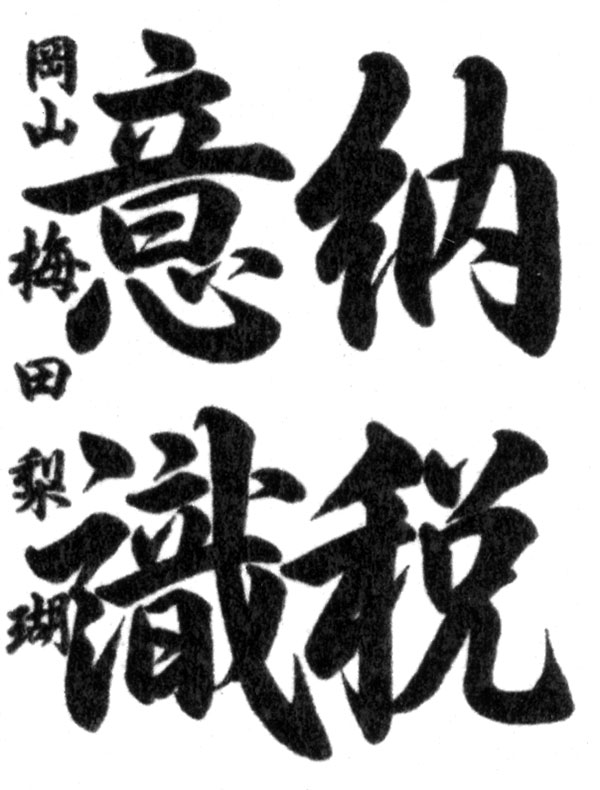 納税
意識
岡山 梅田梨瑚